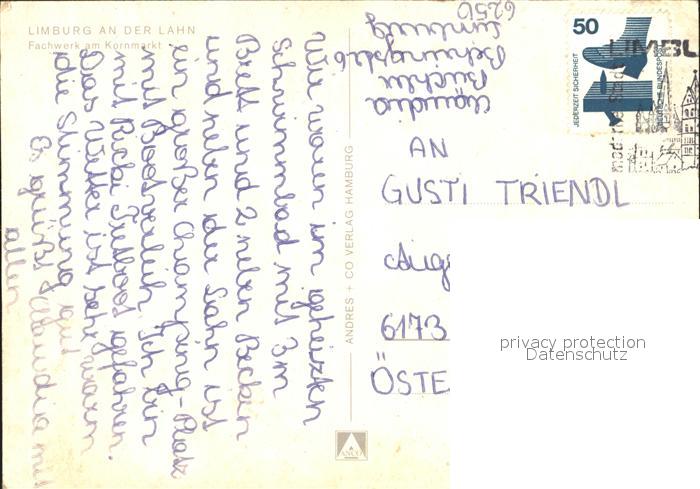 LIMBURG AN DER LAHN
Fachwerk am Kornmarkt
Wir waren im geheizten
Schwimmbad mit 3m
Brett und 2 neben Becken
und neben der Lahn ist
ein großer Chamfing-Platz
mit Bootsverleih. Ich bin
mit Ricki Tretboot gefahren.
Das Wetter ist sehr warm
die Stimmung gut
Es grüßt Claudia mit
allen
ANDRES + CO VERLAG HAMBURG
ANCO
Claudia
Büchler
Limburg
6250
50
JEDERZEIT SICHERHEIT
DEUTSCHE BUNDESPOST
LIMBU
moderne Stadt
AN
GUSTI TRIENDL
6173
ÖSTE
privacy protection
Datenschutz